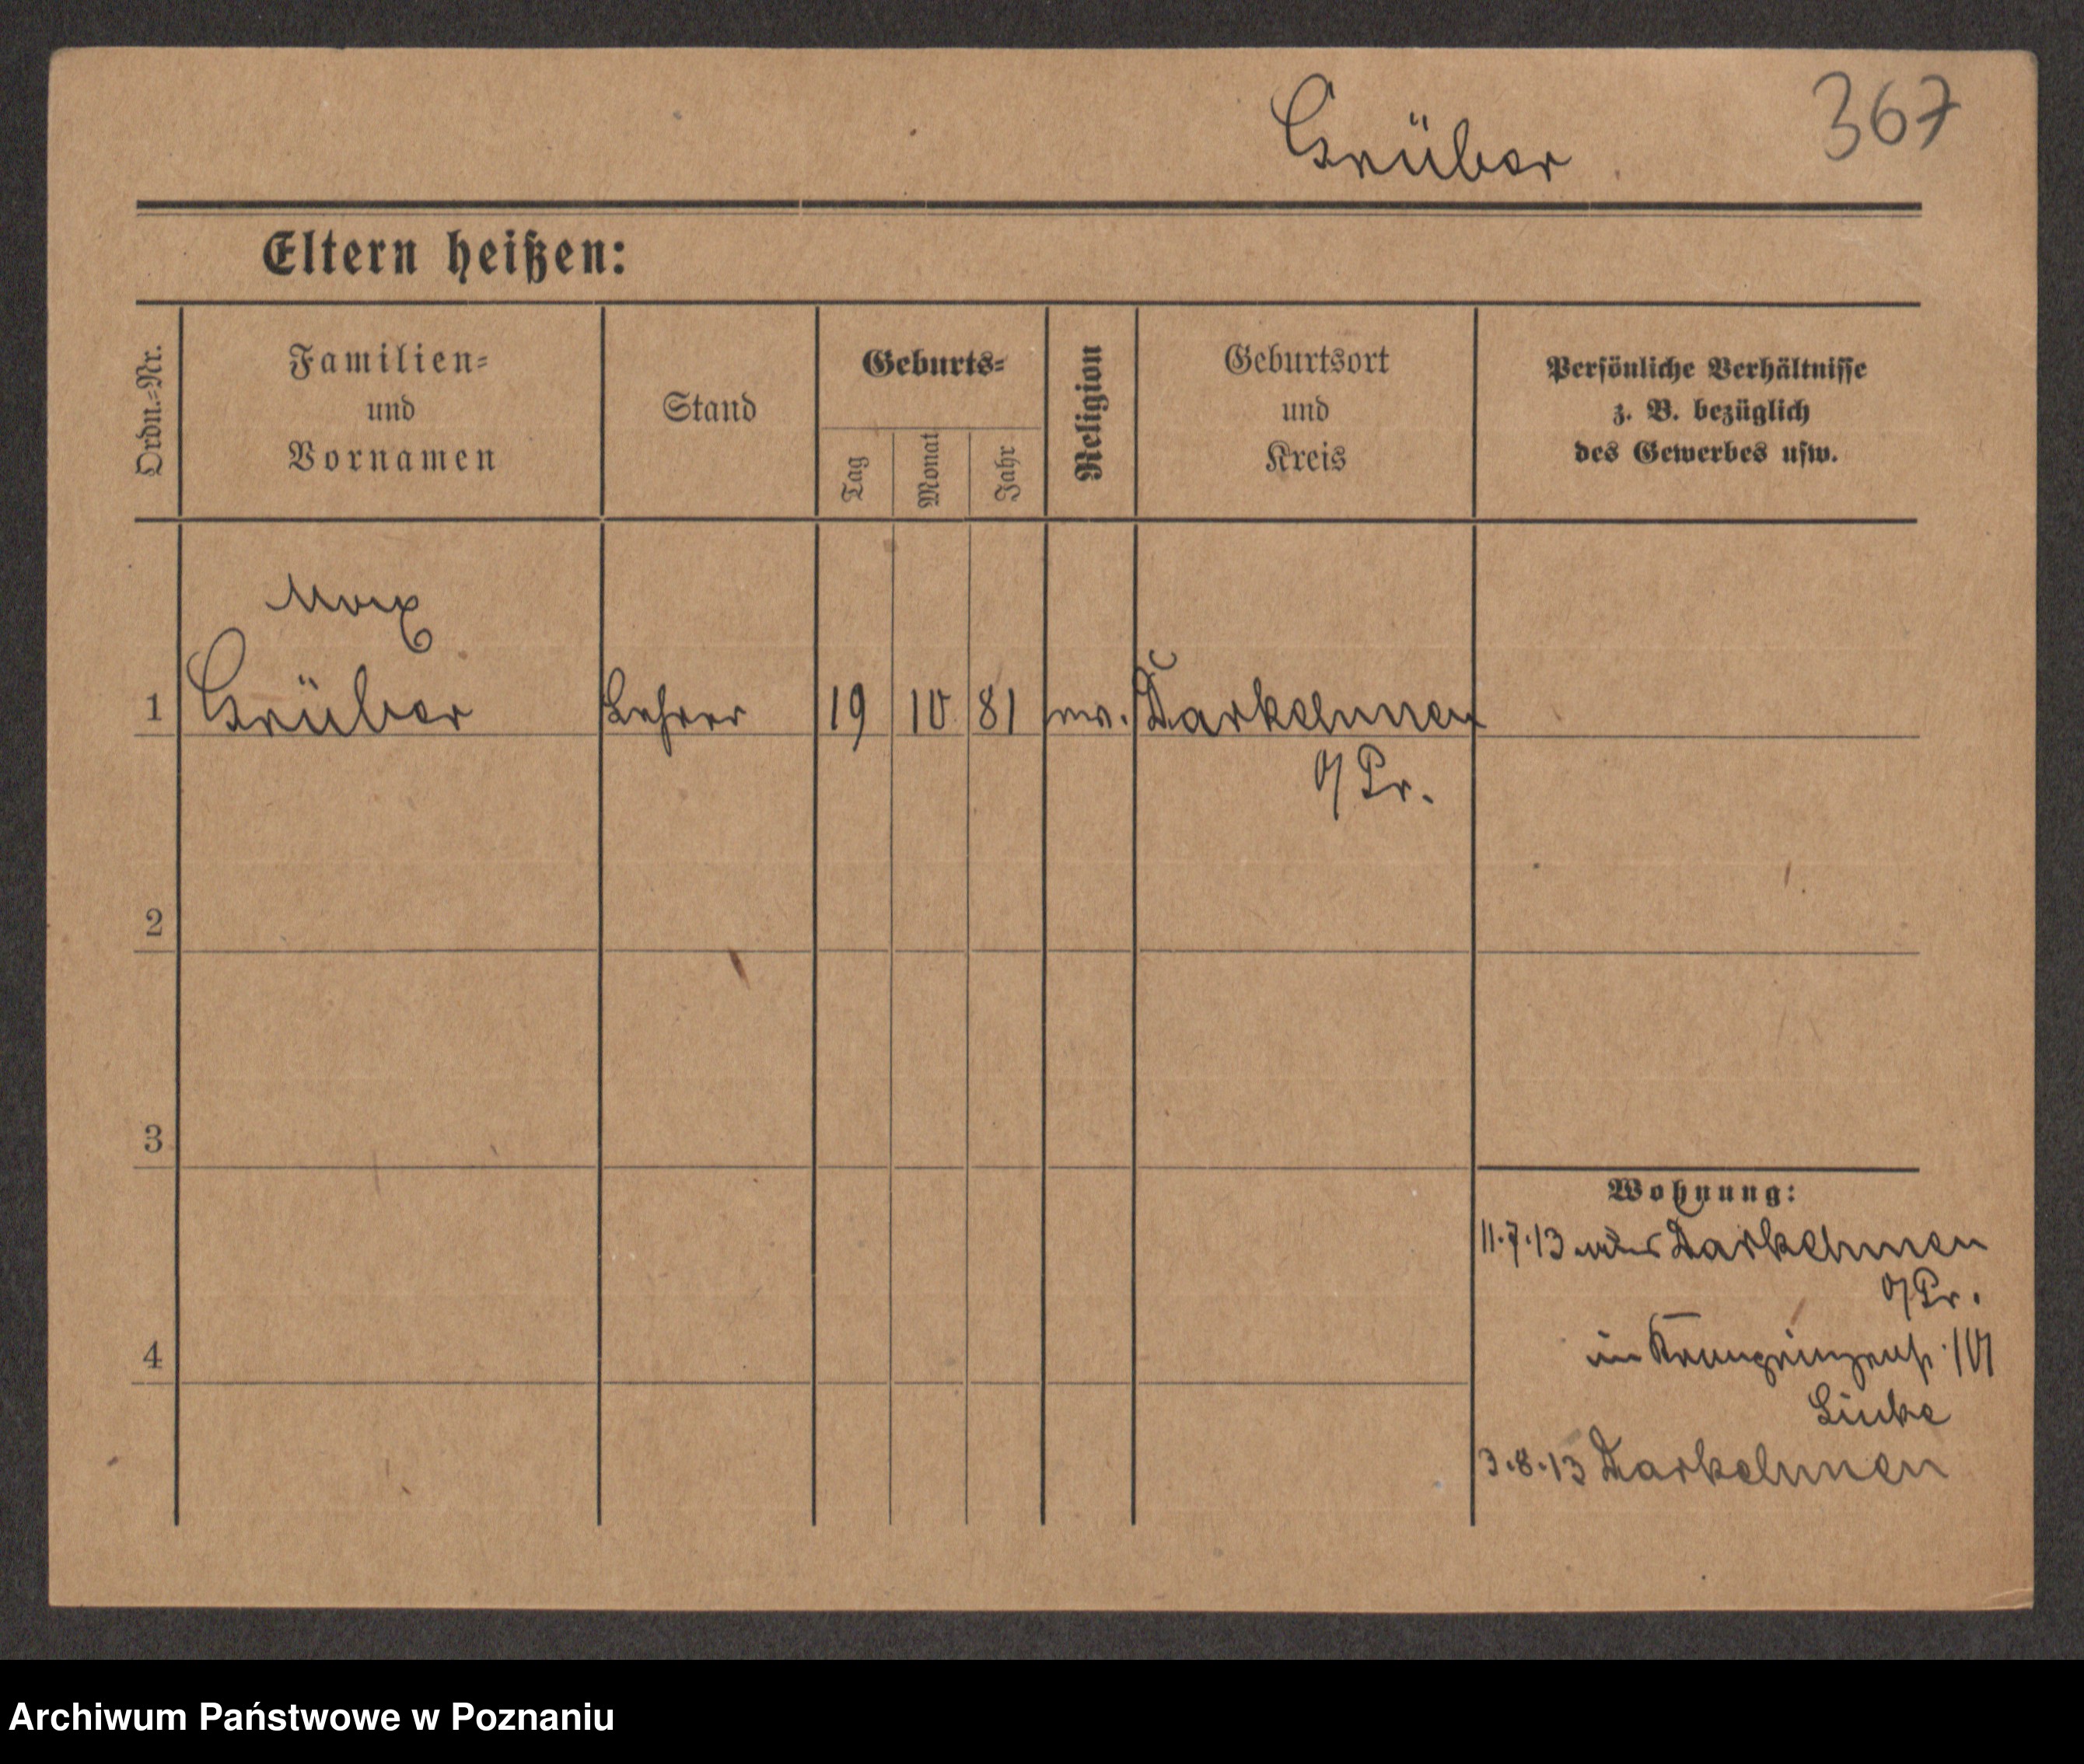 Grüber
367
Eltern heißen:
Ordn.-Nr.
Familien-
und
Vornamen
Stand
Geburts-
Tag
Monat
Jahr
Religion
Geburtsort
und
Kreis
Persönliche Verhältnisse
z. B. bezüglich
des Gewerbes usw.
Max
1 Grüber Lehrer 19 10 81 ev. Darkehmen
O/Pr.
2
3
4
Wohnung:
11.7.13 Darkehmen
O/Pr.
in Kronprinzenst.
Linke
3.8.13 Darkehmen
Archiwum Państwowe w Poznaniu